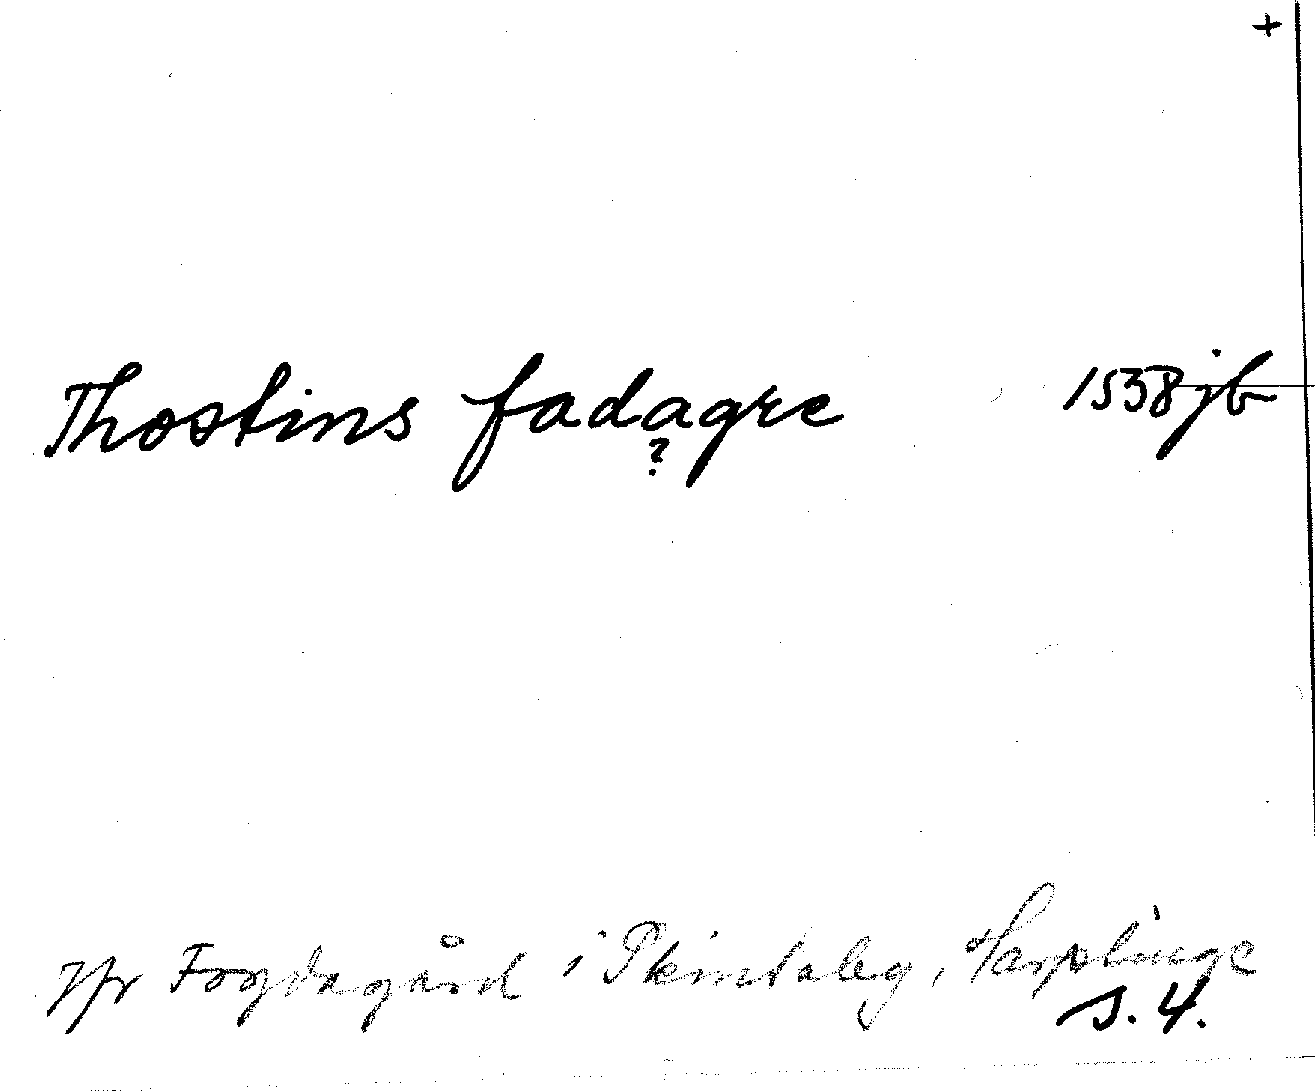 +
Thostins fadagre 1538 jb
?
Jfr Fogdagård i Skintaby, Harplinge
s. 4.